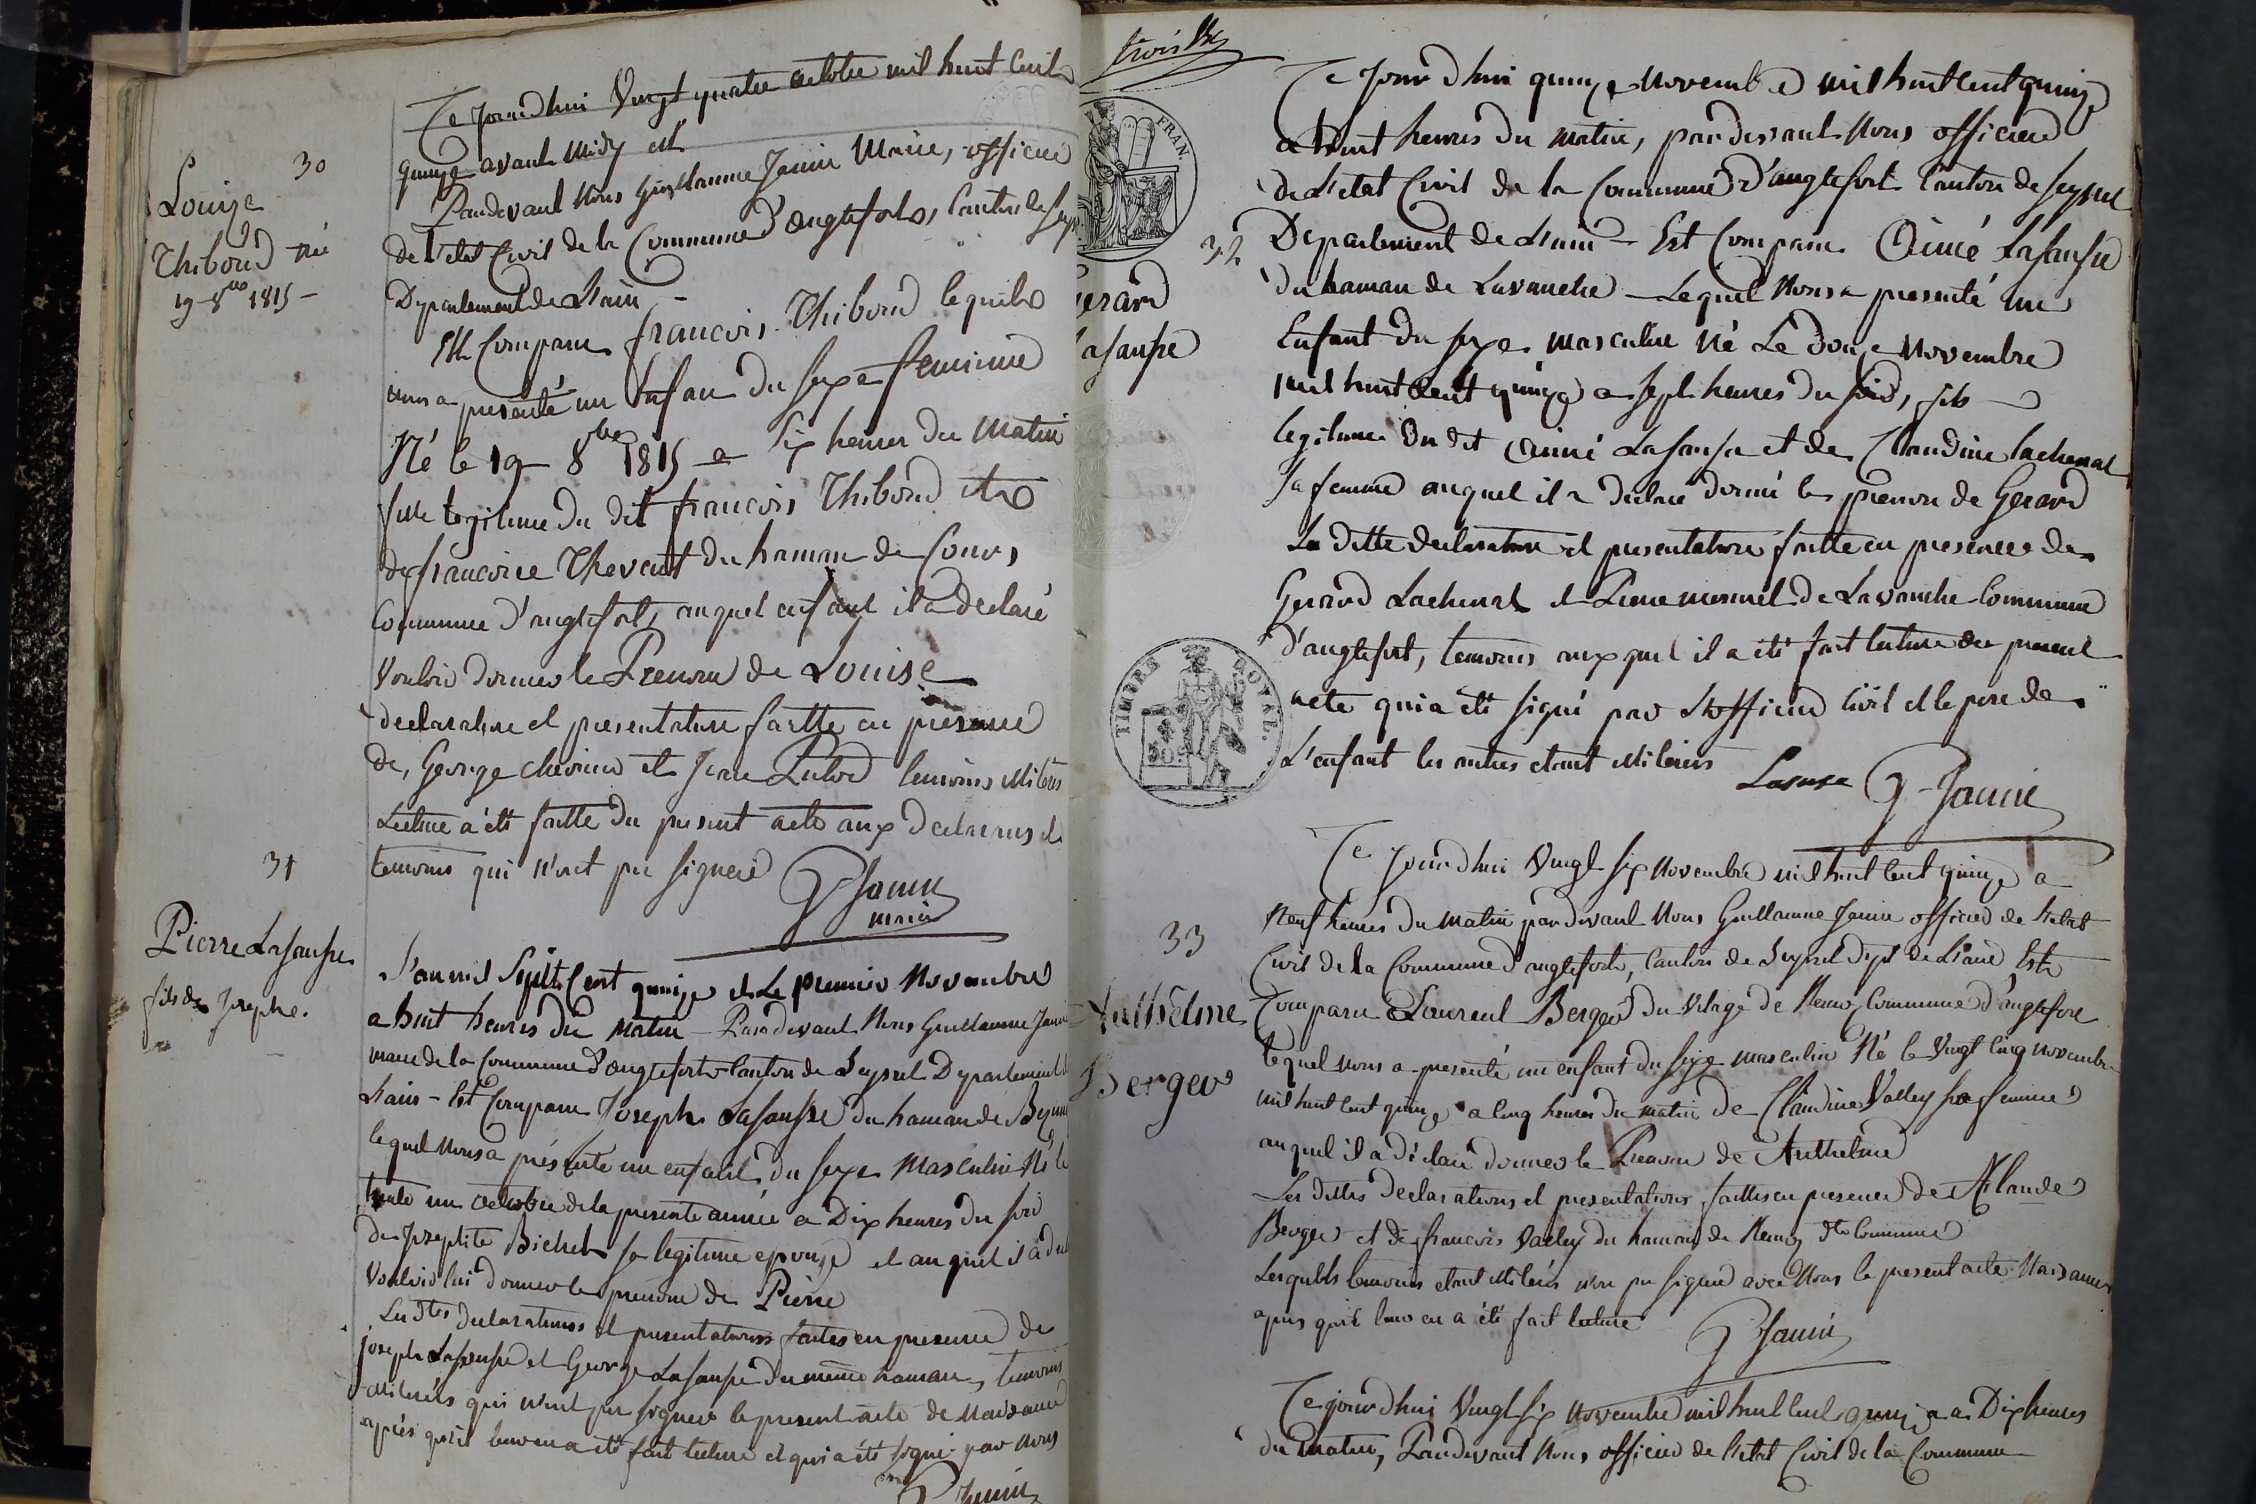 Ce Jourdhui Vingt quatre octobre mil huit Cent
quinze avant Midy est
Pardevant Nous Guillaume Janin Maire, officier
de l'etat Civil de la Commune d'anglefort, Canton de Seys
Departement de Lain -
Est Comparu francois Thiboud lequel
nous a presenté un Enfan du sexe feminine
Né le 19 8bre 1815 a Six heures du Matin
fille legitime du dit francois Thiboud et
de francoise Thevent du hamau de
Commune d'anglefort, auquel enfant il a declaré
Vouloir donner le Prenom de Louise
declaration et presentation faitte en presence
de, George chevrier et Jean temoins
Lecture a été faitte du present acte aux declarans et
temoins qui n'ont pu signer
G Janin
maire
30
Louize
Thiboud née
19 8bre 1815 -
31
Pierre Lasausse
fils de Josephe.
L'an mil Septt Cent quinze et Le premier Novembre
a huit heures du Matin - Pardevant Nous Guillaume Janin
maire de la Commune d'anglefort Canton de Seyssel Departement de
Lain - Est Comparu Joseph Lasausse du hamau de
lequel Nous a présenté un enfant du sexe Masculin Né le
trente un octobre de la presente année a Dix heures du soir
de Josephte Bichet sa legitime epouse et auquel il a
Vouloir lui donner le prenom de Pierre
Les dtes declarations et presentations faites en presence de
joseph Lasausse et George Lasausse du meme hamau, temoins
qui n'ont pu signer le present acte de Naissance
après qu'il leur en a été fait lecture et qui a été signé par nous
G Janin
trois
FRAN.
TIMBRE ROYAL.
Ce Jourdhui quinze Novembre mil huit Cent quinze
a huit heures du Matin, pardevant Nous officier
de L'etat Civil de la Commune d'anglefort Canton de Seyssel
Departement de Lain - Est Comparu Aimé Lasausse
du hamau de Lavanche - Lequel Nous a presenté un
Enfant du sexe masculin Né Le douze Novembre
mil huit Cent quinze a sept heures du soir, fils
legitime du dit Aimé Lasausse et de Claudine Lachenal
sa femme auquel il a declaré donné le prenom de Gerard
La ditte declaration et presentation faitte en presence de
Gerard Lachenal et Pierre de Lavanche Commune
d'anglefort, temoins auxquel il a été fait lecture du present
acte qui a été signé par L'officier Civil et le pere de
L'enfant les autres etant
Lasausse G Janin
32
Gerard
Lasausse
Ce Jourdhui Vingt six Novembre mil huit Cent quinze a
Neuf heures du Matin pardevant Nous Guillaume Janin officier de Letat
Civil de la Commune d'anglefort, Canton de Seyssel Dept de Lain Est
Comparu Laurent Berger du Vilage de Commune d'anglefort
lequel nous a presenté un enfant du sexe masculin Né le Vingt Cinq Novembre
mil huit Cent quinze a Cinq heures du matin de Claudine Valley sa femme
auquel il a déclaré donner le Prenom de Anthelme
Les dittes declarations et presentations faittes en presence de Claude
Berger et de francois Valley du hamau de dte Commune
Lesquels temoins etant n'on pu signer avec Nous le present acte Naissance
apres qu'il leur en a été fait lecture
G Janin
33
Anthelme
Berger
Ce jourdhui Vingt six Novembre mil huit Cent quinze a Dix heures
du Matin, Pardevant Nous officier de Letat Civil de la Commune